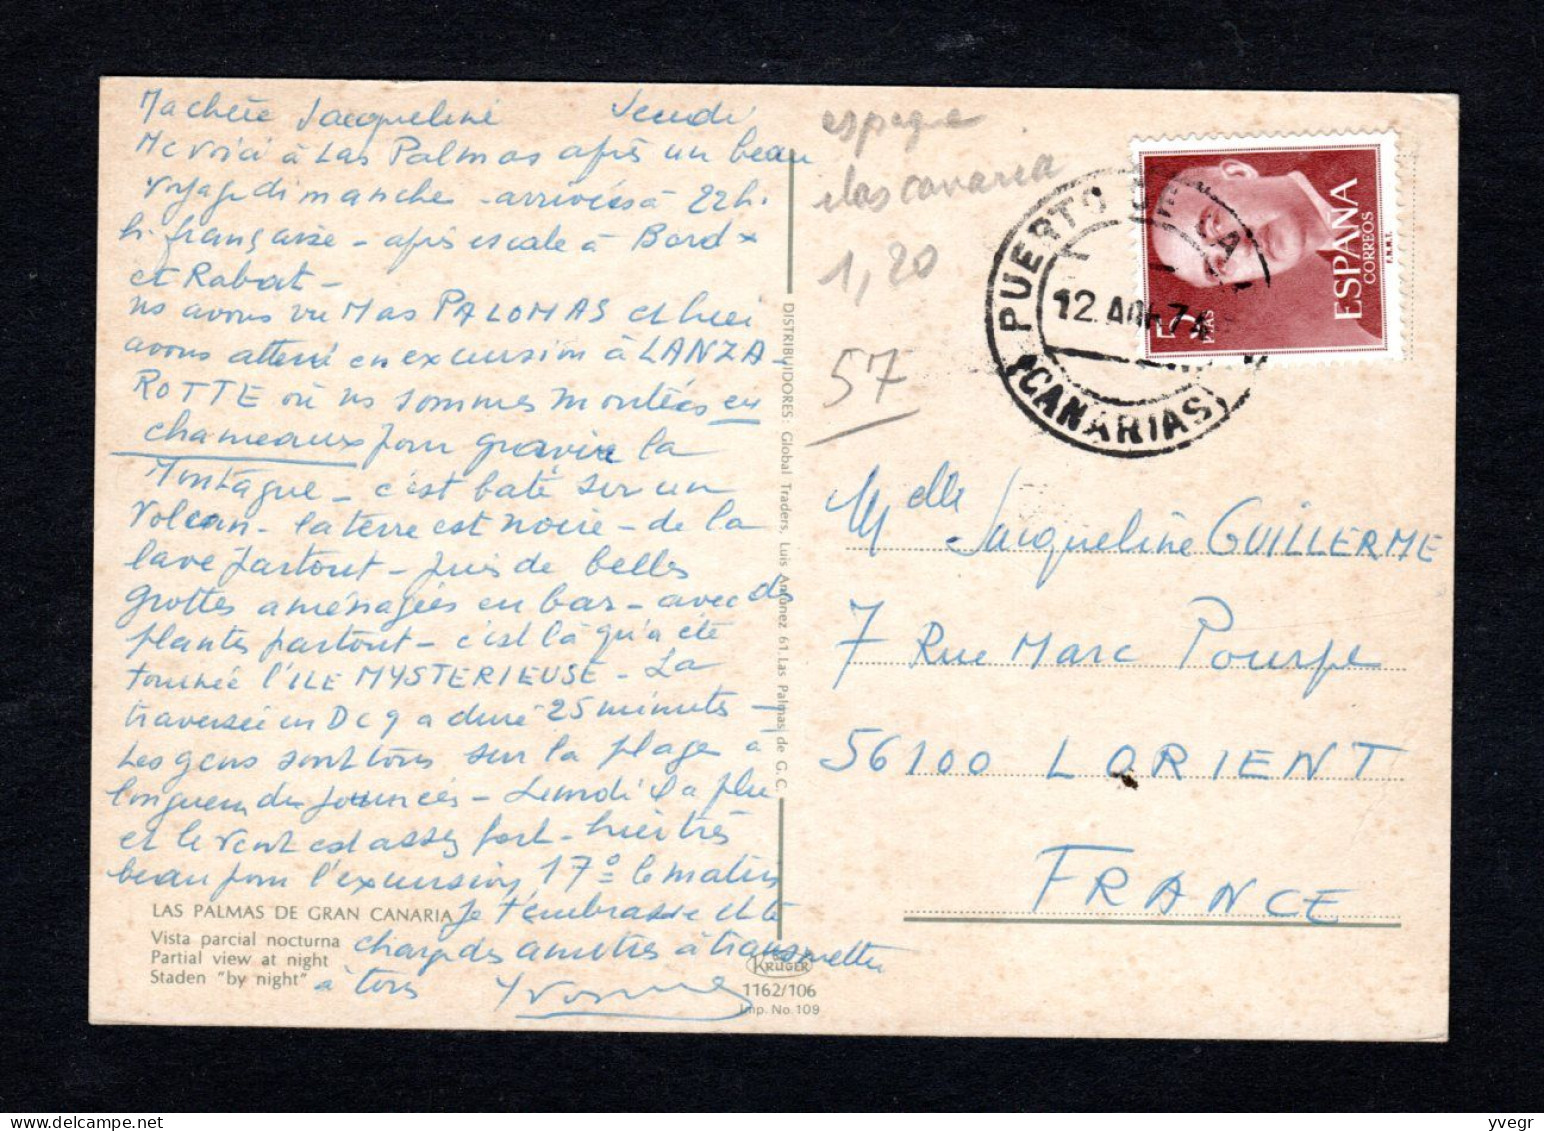 Ma chère Jacqueline Jeudi
Me voici à Las Palmas après un beau
voyage dimanche - arrivées à 22h.
h. française - après escale à Bordx
et Rabat -
ns avons vu Mas PALOMAS et hier
avons atterri en excursion à LANZA
ROTTE où ns sommes montées en
chameaux pour gravir la
Montagne - c'est bati sur un
Volcan - la terre est noire - de la
lave partout - puis de belles
grottes aménagées en bar - avec ds
plantes partout - c'est là qu'a été
tournée l'ILE MYSTERIEUSE - La
traversée en DC9 a duré 25 minutes -
Les gens sont tous sur la plage à
longueur de journées - Lundi de la pluie
et le vent est assez fort - hier très
beau pour l'excursion 17° le matin
Je t'embrasse et te
charge des amitiés à transmettre
à tous Yvonne
LAS PALMAS DE GRAN CANARIA
Vista parcial nocturna
Partial view at night
Staden "by night"
DISTRIBUIDORES: Global Traders, Luis Antúnez 61. Las Palmas de G.C.
KRÜGER
1162/106
Imp. No. 109
espagne
ilas canaria
1,20
57
PUERTO DE LA
12. 74
(CANARIAS)
5 PTAS
ESPAÑA
CORREOS
F.N.M.T.
Melle Jacqueline GUILLERME
7 Rue Marc Pourpe
56100 LORIENT
FRANCE
yvegr
www.delcampe.net